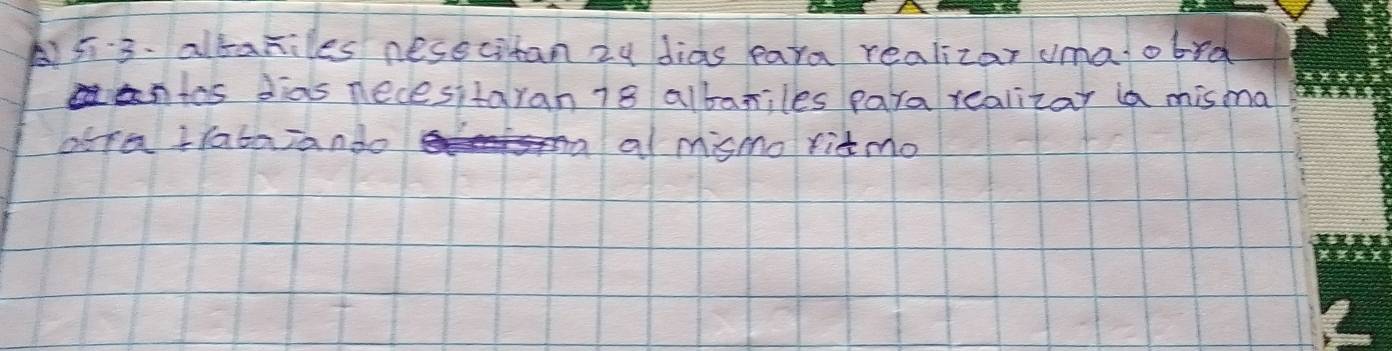 A) 5.3. albañiles nesecitan 24 dias para realizar uma.obra
antos dias necesitaran 18 albañiles para realizar la misma
otra trabajando al mismo ritmo